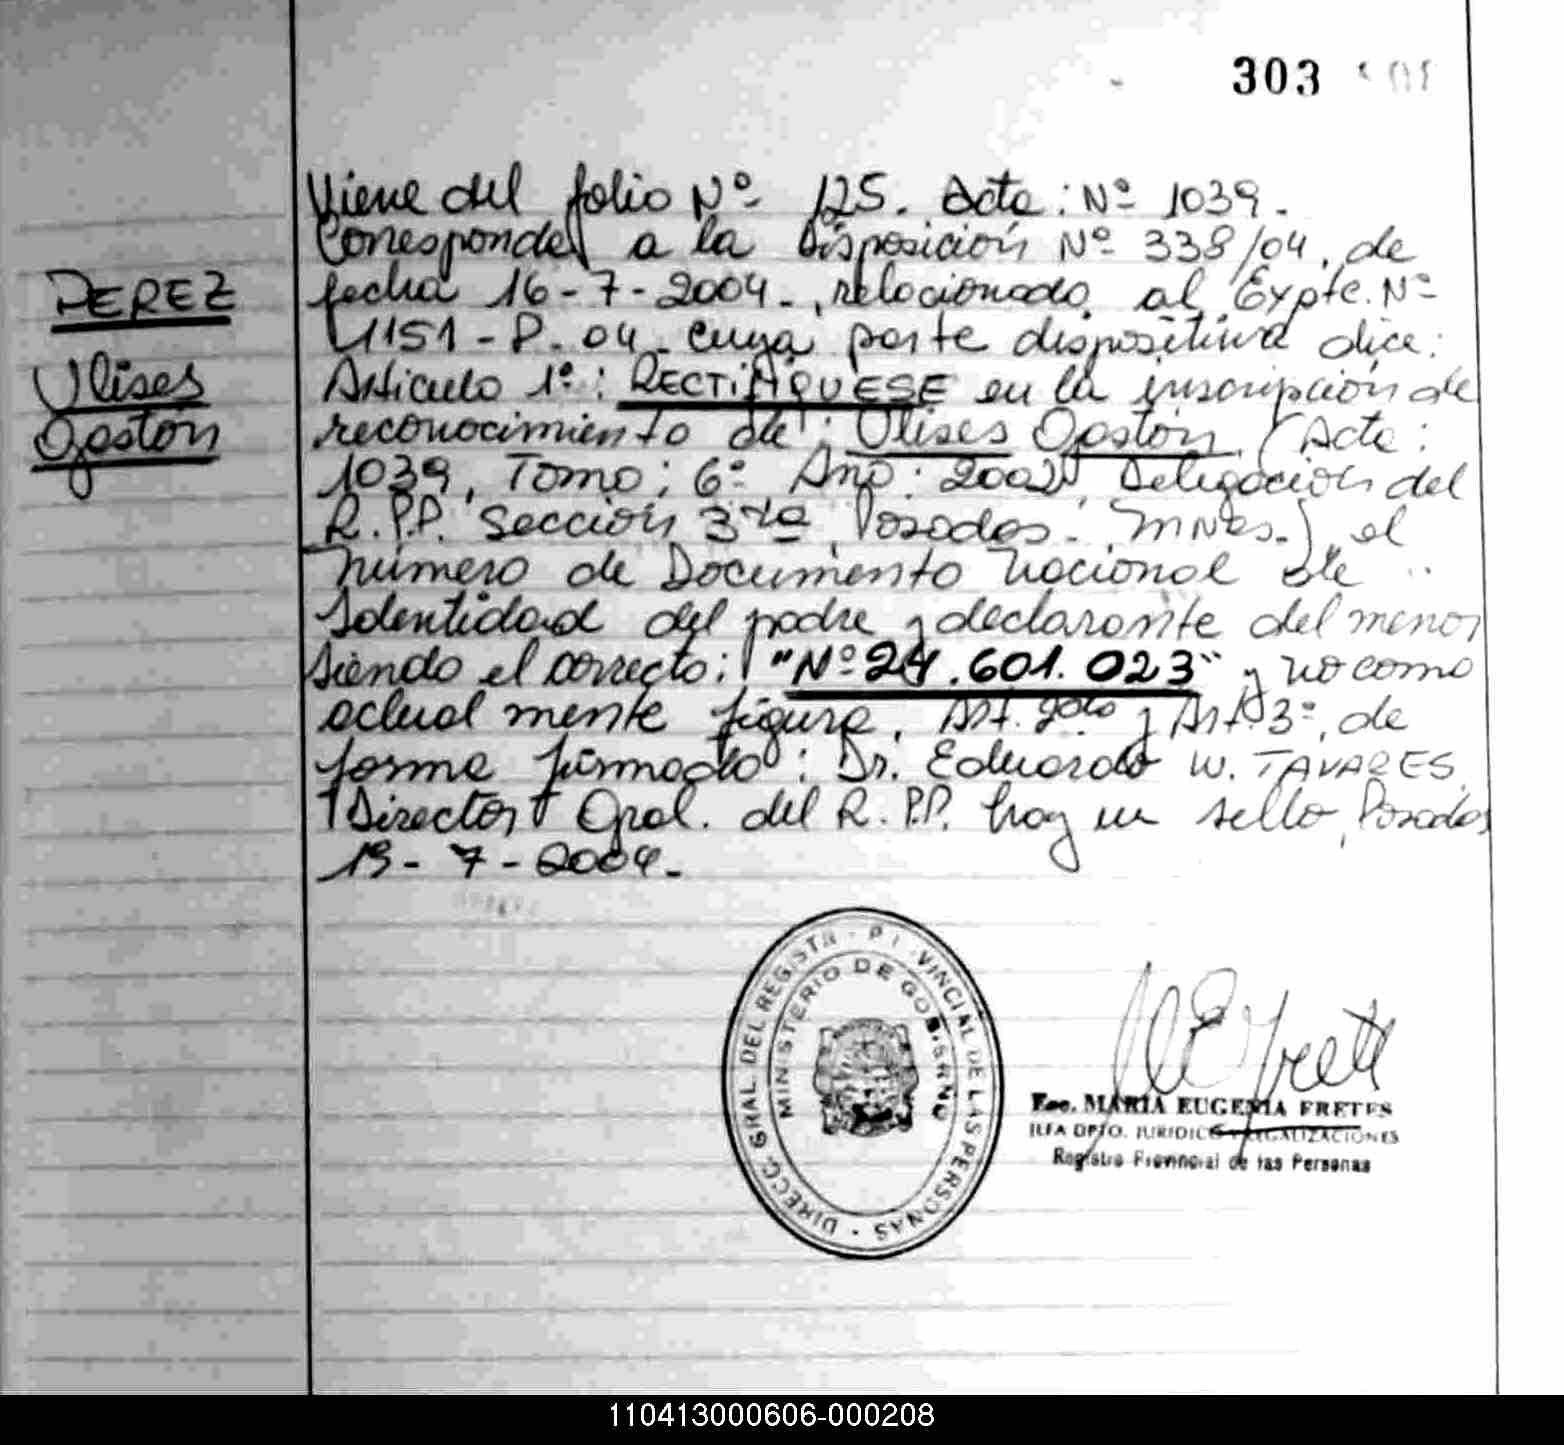 303
PEREZ
Ulises
Gastón
Viene del folio Nº 125. Acta: Nº 1039.
Corresponde a la Disposición Nº 338/04, de
fecha 16-7-2004., relacionado al Expte. Nº
1151-P-04. cuya parte dispositiva dice:
Artículo 1º: RECTIFIQUESE en la inscripción de
reconocimiento de: Ulises Gastón, (Acta:
1039, Tomo: 6º Año: 2002 Delegación del
R.P.P. Sección 3ra Posadas. Mnes.) el
número de Documento Nacional de
Identidad del padre y declarante del menor
siendo el correcto: "Nº 24.601.023" y no como
actualmente figura. Art. 2do y Art. 3º, de
forma firmado: Dr. Eduardo W. TAVARES
Director Gral. del R.P.P. hay un sello, Posadas
19-7-2004.
DIRECC. GRAL. DEL REGISTR PROVINCIAL DE LAS PERSONAS
MINISTERIO DE GOBIERNO
Esc. MARIA EUGENIA FRETES
JEFA DPTO. JURIDICO Y LEGALIZACIONES
Registro Provincial de las Personas
110413000606-000208